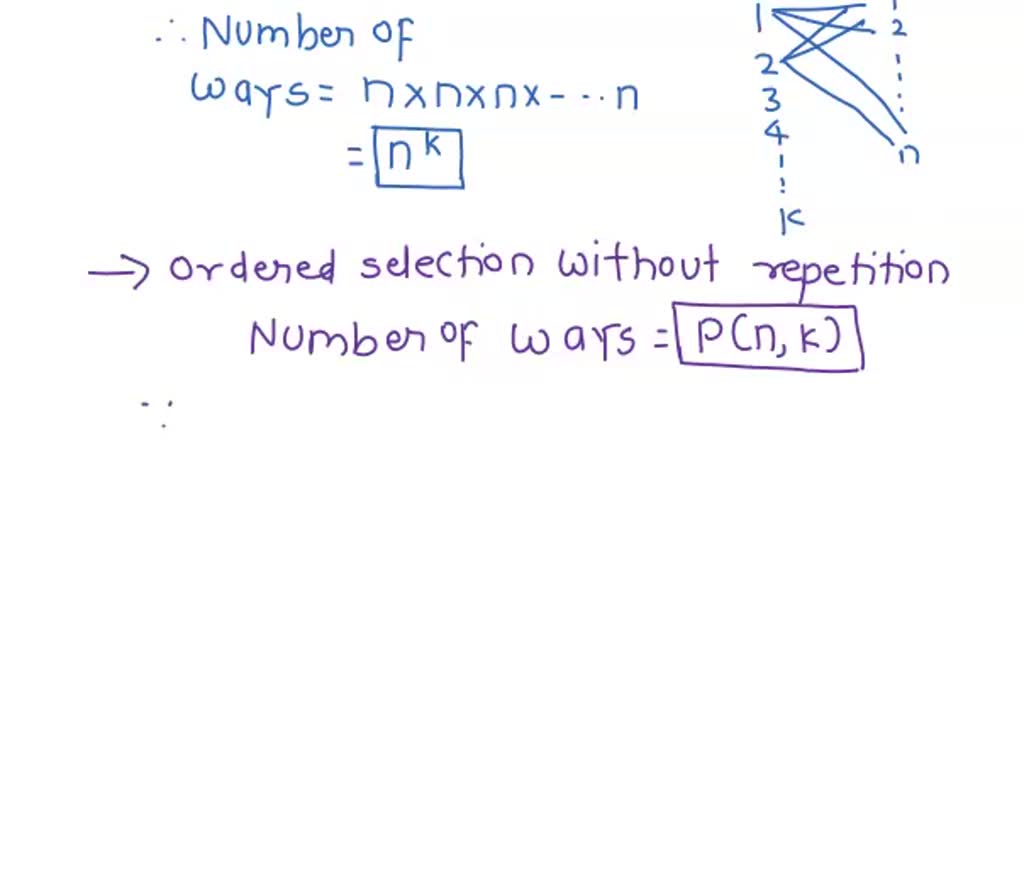 ∴ Number of
ways = n×n×n×-···n
= n^k
1
2
3
4
k
1
2
n
→ ordered selection without repetition
Number of ways = P(n, k)
∵